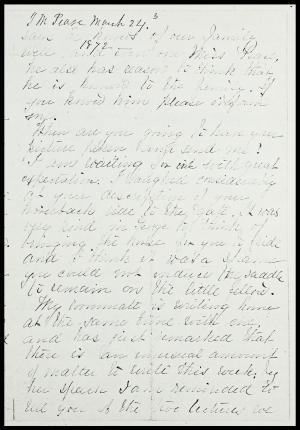 I. M. Pease March 24. 3
said he knows of our family
well 1872 one Miss Pease,
he also has reason to think that
he is known to the family. If
you know him please inform
me.
When are you going to have your
picture taken and send me?
I am waiting for it with great
expectation. I laughed considering
at your description of your
horseback ride to the Gate. It was
very kind in George to think of
bringing the horse for you to ride
and I think it was a shame
you could not induce the saddle
to remain on the little fellow.
My roommate is writing home
at the same time with me,
and has just remarked that
there is an unusual amount
of matter to write this week, by
her speech I am reminded to
tell you of the two lectures we